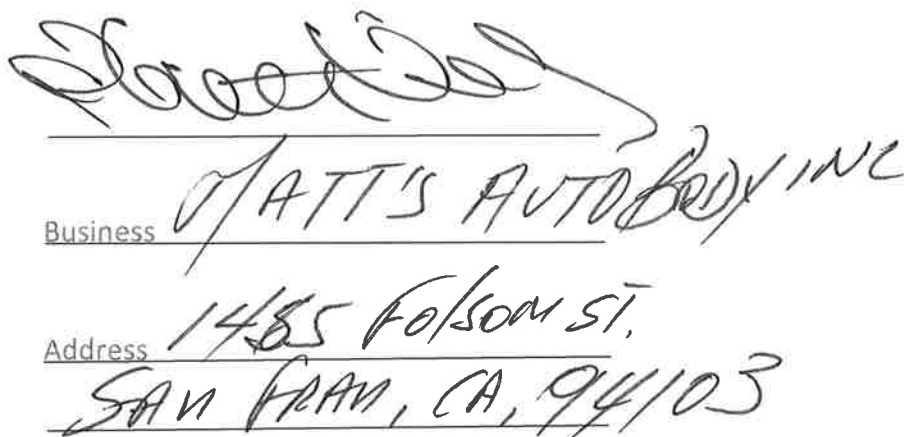 Business MATT'S AUTO BODY INC
Address 1485 Folsom ST.
SAN FRAN, CA, 94103